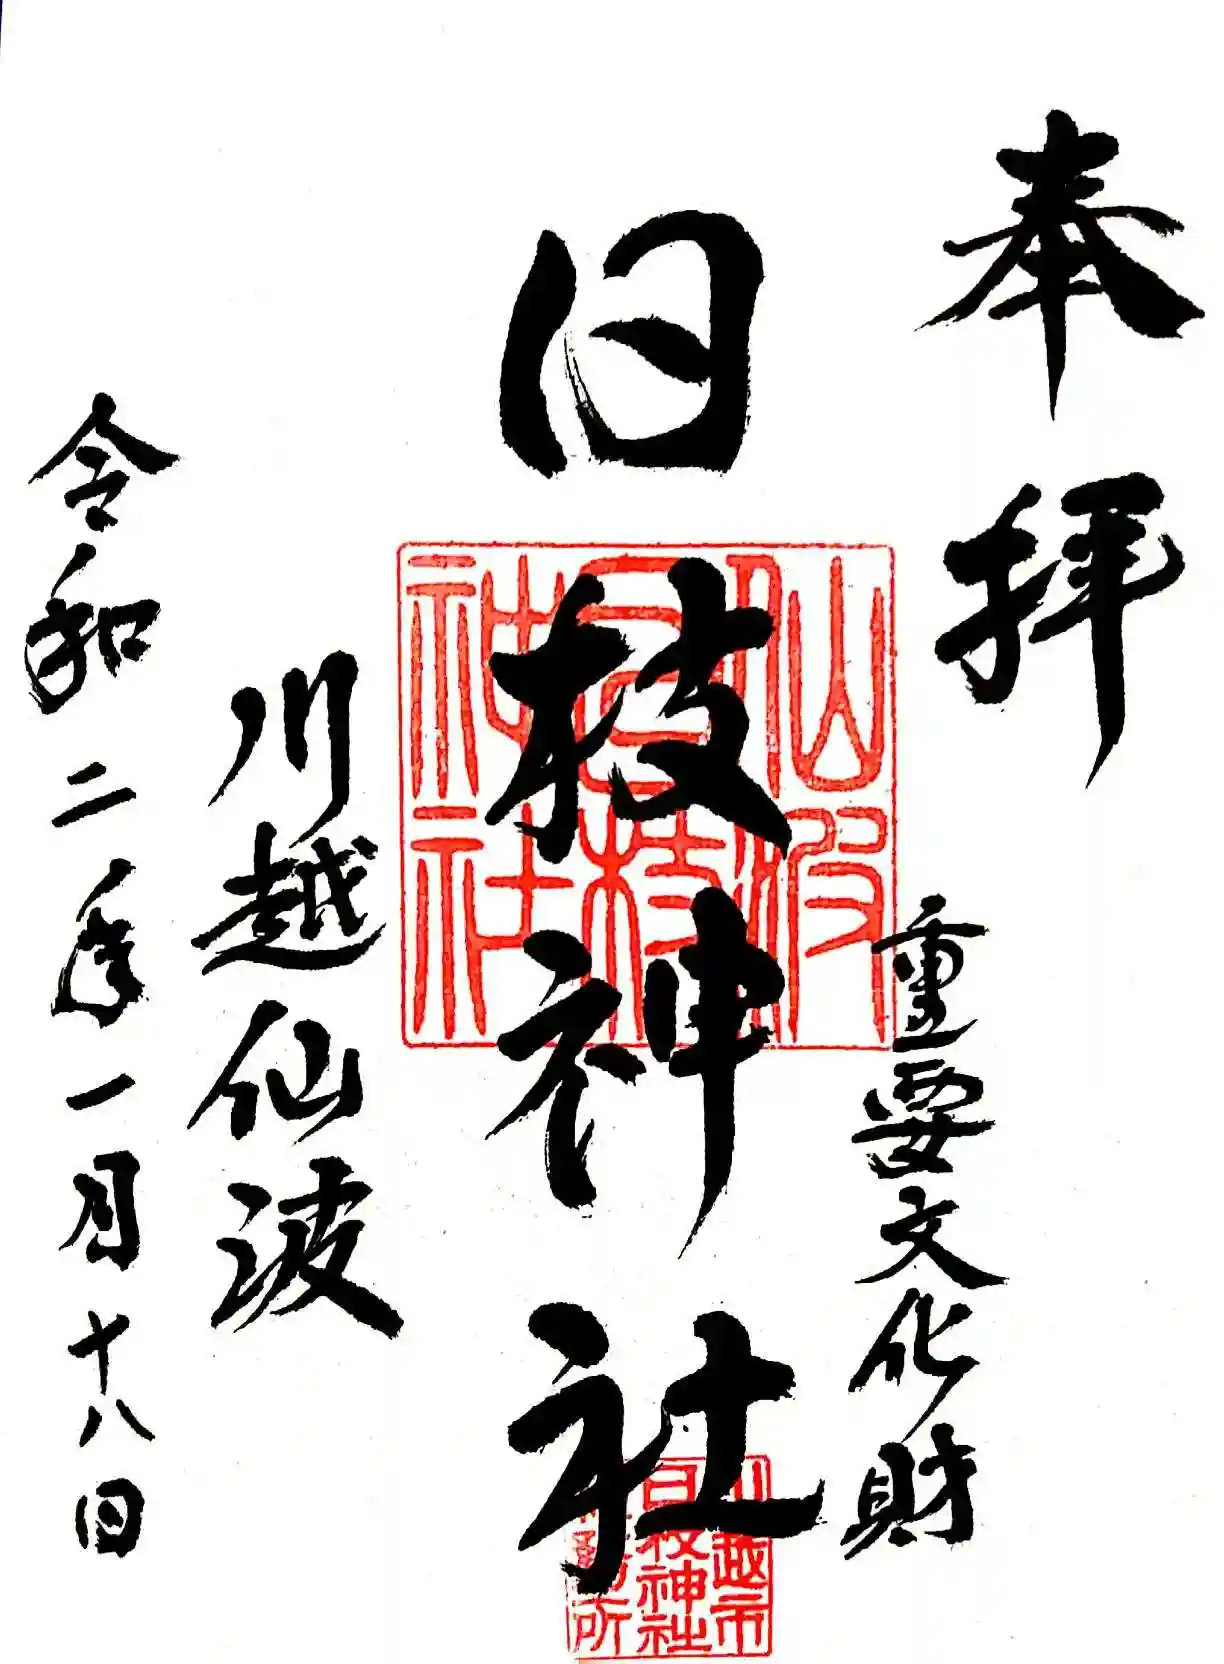 奉拝
重要文化財
日枝神社
仙波
日枝
神社
川越市
日枝神社
務所
川越仙波
令和二年一月十八日